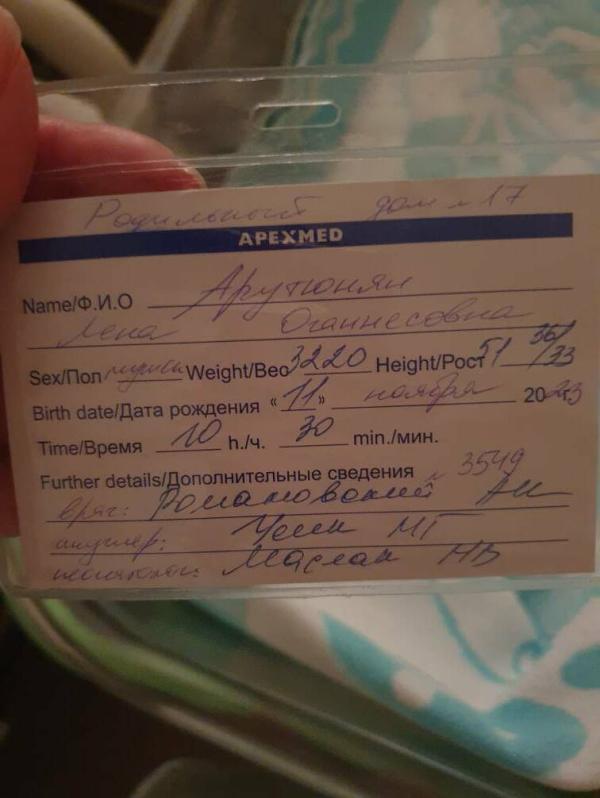 Родильный дом № 17
APEXMED
Name/Ф.И.О Арутюнян
Лена Оганнесовна
Sex/Пол Weight/Вес 3220 Height/Рост 51 35/33
Birth date/Дата рождения « 11 » ноября 2023
Time/Время 10 h./ч. 30 min./мин.
Further details/Дополнительные сведения № 3549
врач: Романовский АИ
акушер: МГ
Маслак НВ